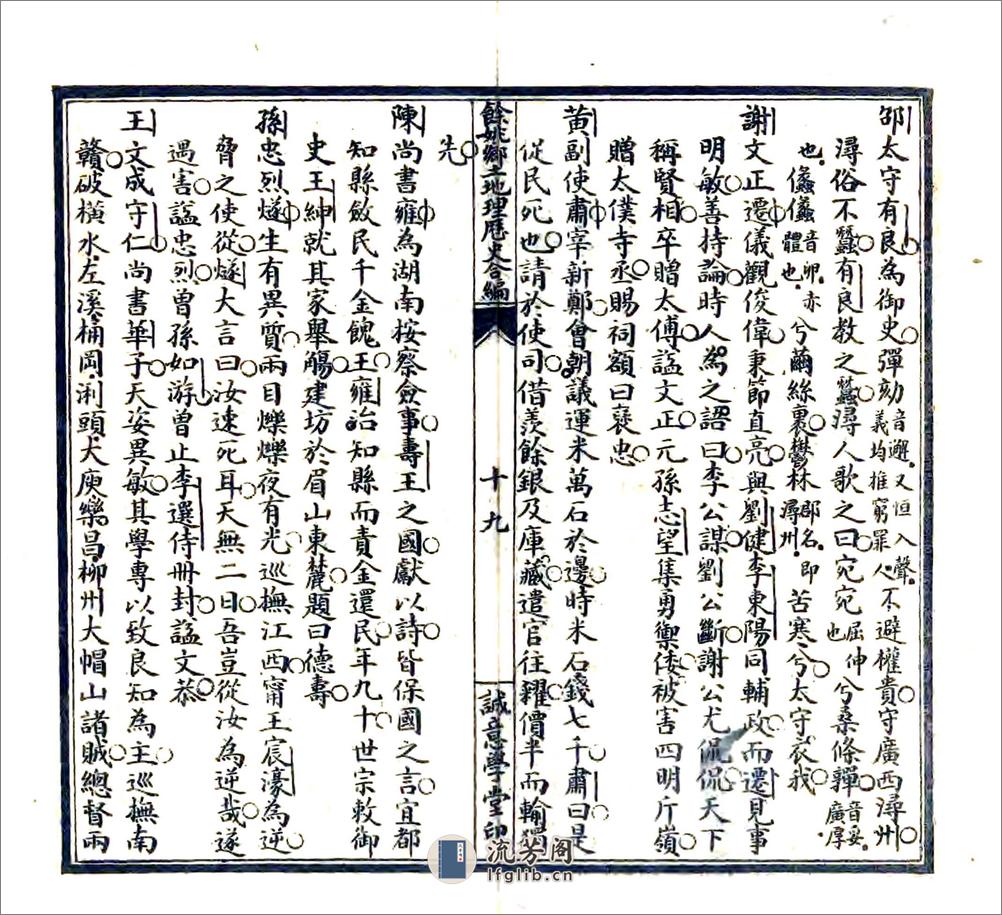 邵太守有良為御史彈劾音邂又恒入聲義均推窮罪人不避權貴守廣西潯州
潯俗不蠶有良教之蠶潯人歌之曰宛宛屈伸也兮桑條嚲音妥廣厚
也儀儀音卬亦體也兮繭絲裹鬱林郡名即潯州苦寒兮太守衣我
謝文正遷儀觀俊偉秉節直亮與劉健李東陽同輔政而遷見事
明敏善持論時人為之語曰李公謀劉公斷謝公尤侃侃天下
稱賢相卒贈太傅諡文正元孫志望集勇禦倭被害四明斤嶺
贈太僕寺丞賜祠額曰褒忠
黃副使肅宰新鄭會朝議運米萬石於邊時米石錢七千肅曰是
促民死也請於使司借羨餘銀及庫藏遣官往糴價半而輸獨
先
餘姚鄉土地理歷史合編
十九
誠意學堂印
陳尚書雍為湖南按察僉事壽王之國獻以詩皆保國之言宜都
知縣斂民千金餽王雍治知縣而責金還民年九十世宗敕御
史王紳就其家舉觴建坊於眉山東麓題曰德壽
孫忠烈燧生有異質兩目爍爍夜有光巡撫江西甯王宸濠為逆
脅之使從燧大言曰汝速死耳天無二日吾豈從汝為逆哉遂
遇害諡忠烈曾孫如游曾止李選侍冊封諡文恭
王文成守仁尚書華子天姿異敏其學專以致良知為主巡撫南
贛破橫水左溪桶岡浰頭大庾樂昌柳州大帽山諸賊總督兩
流芳阁
lfglib.cn